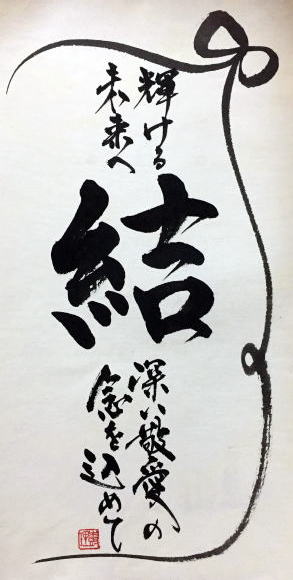 輝ける
未来へ
結
深い敬愛の
念を込めて